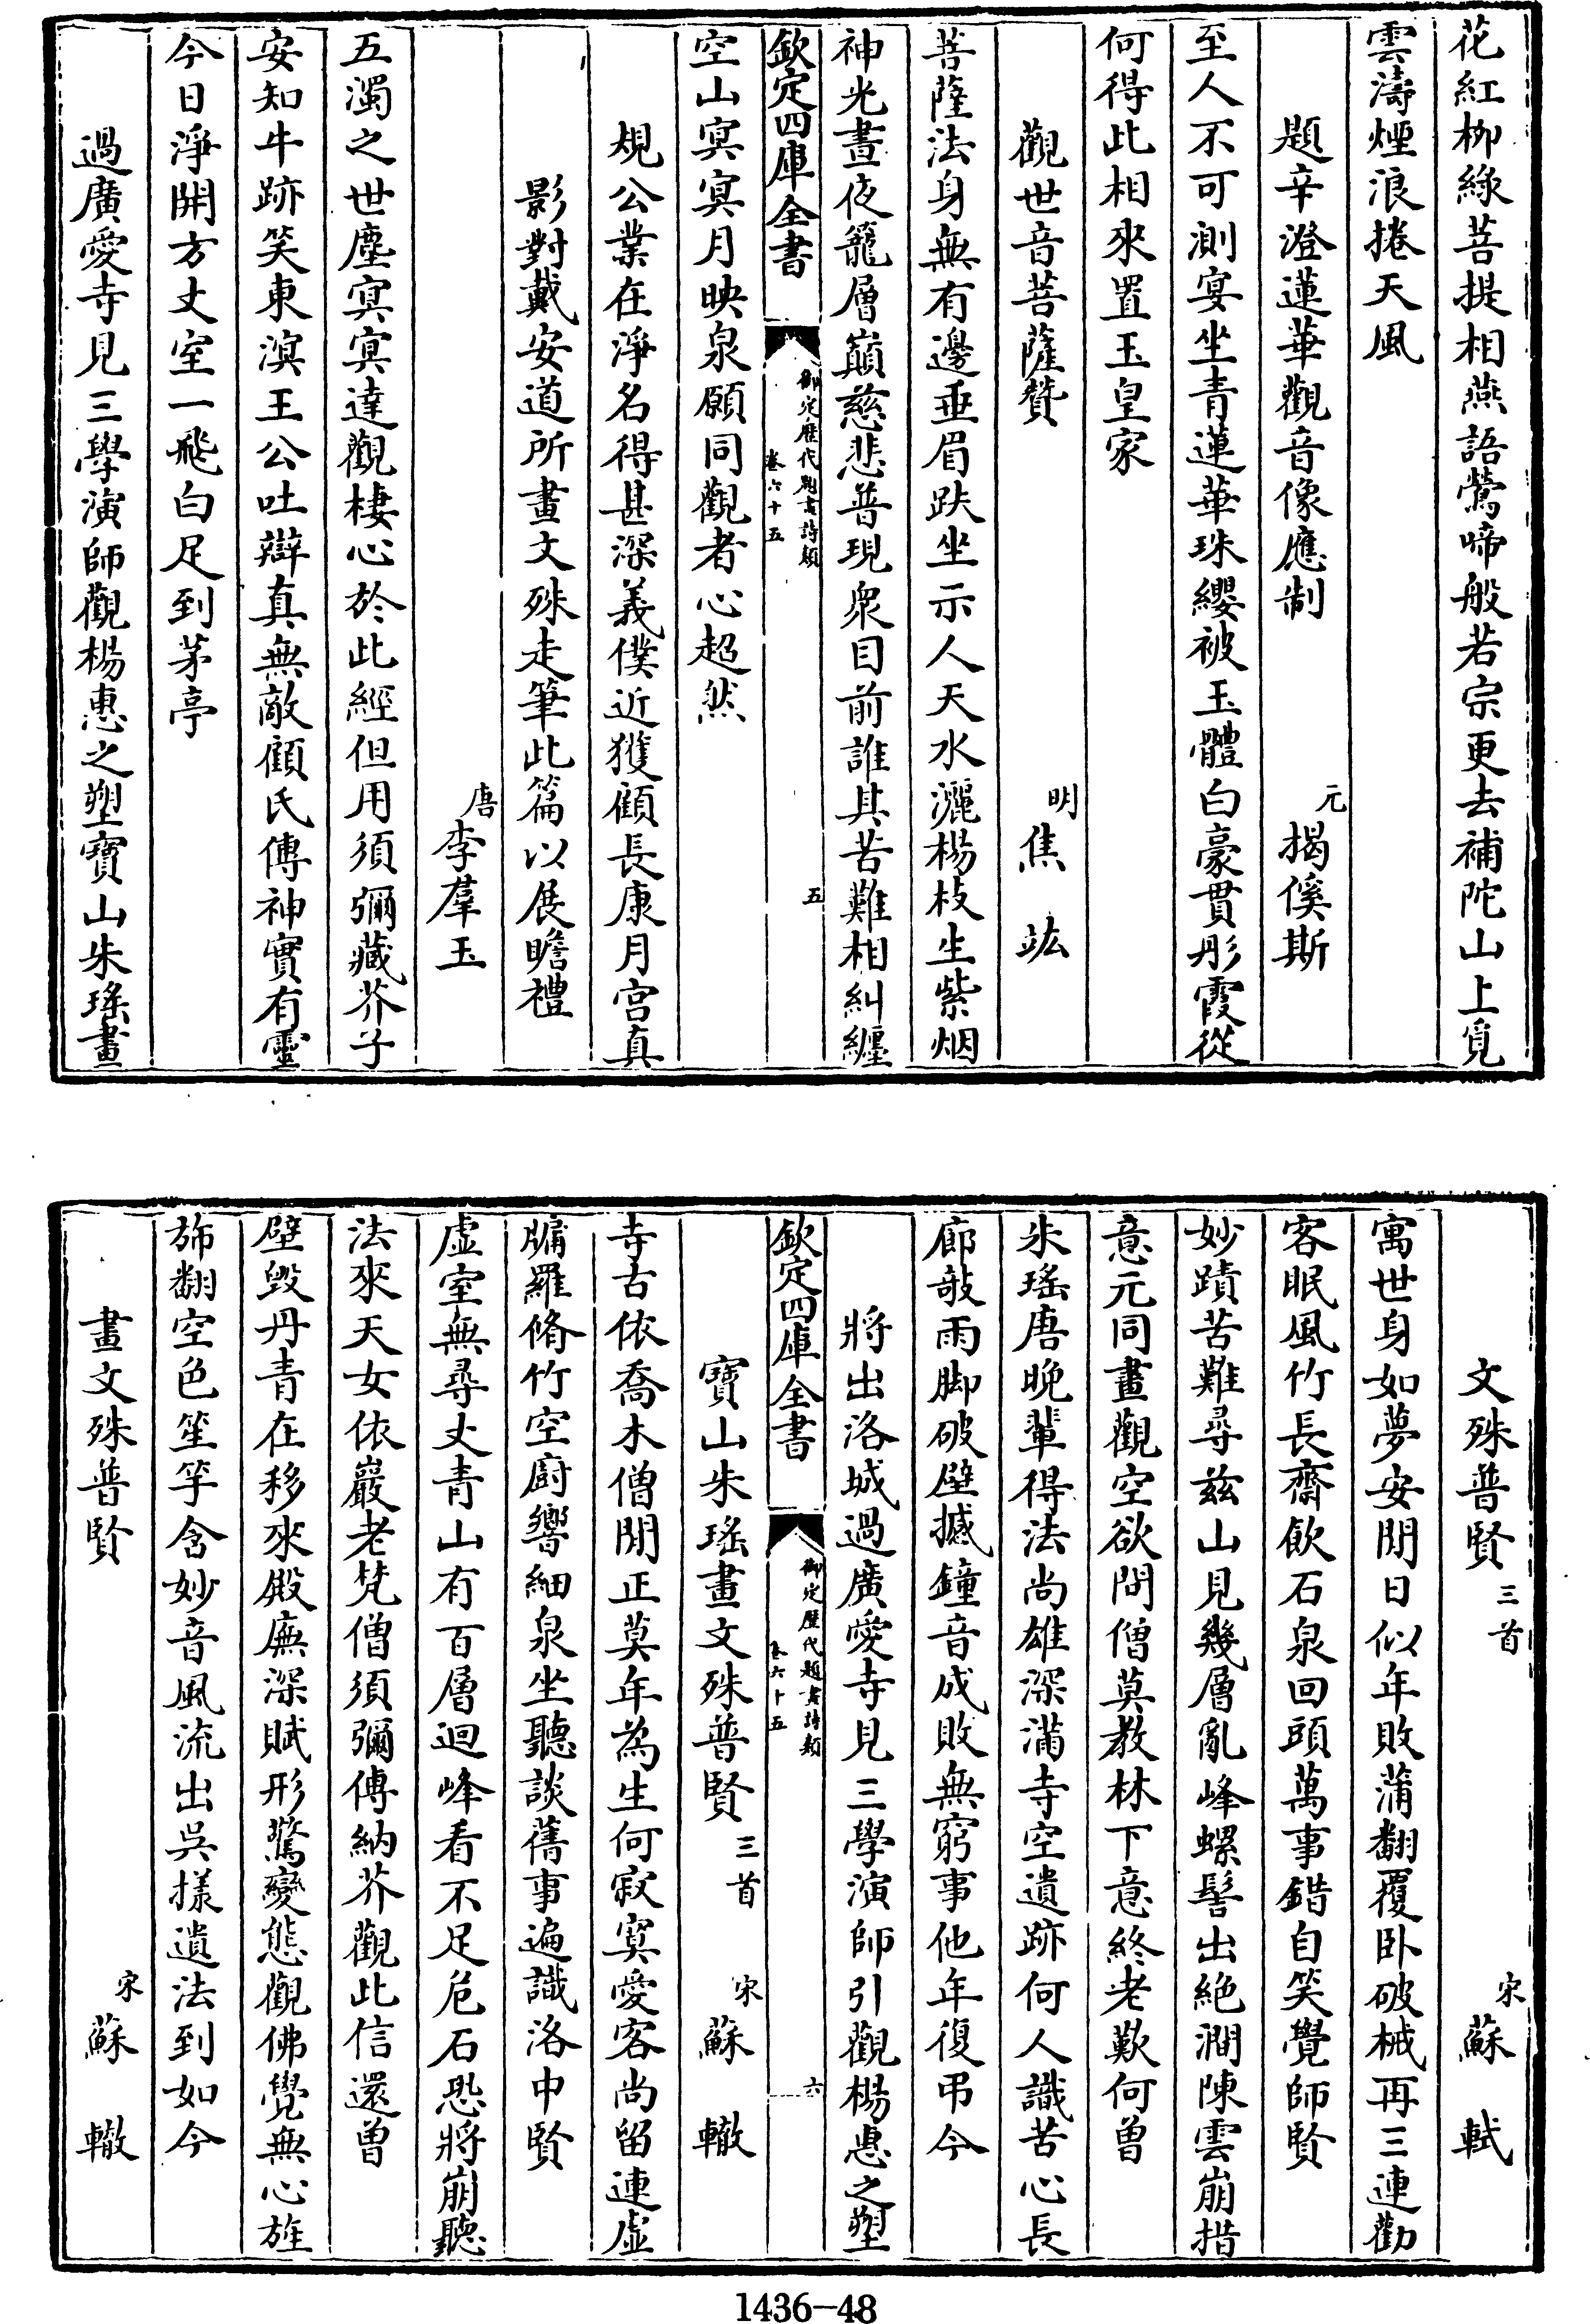 花紅柳綠菩提相燕語鶯啼般若宗更去補陀山上覓
雲濤煙浪捲天風
題辛澄蓮華觀音像應制
元揭傒斯
至人不可測宴坐青蓮華珠纓被玉體白豪貫彤霞從
何得此相來置玉皇家
觀世音菩薩贊
明焦竑
菩薩法身無有邊垂眉趺坐示人天水灑楊枝生紫烟
神光晝夜籠層巔慈悲普現衆目前誰其苦難相糾纒
欽定四庫全書
御定歷代題畫詩類
卷六十五
五
空山㝠㝠月映泉願同觀者心超然
規公業在淨名得甚深義僕近獲顧長康月宮真
影對戴安道所畫文殊走筆此篇以展瞻禮
唐李羣玉
五濁之世塵㝠㝠達觀棲心於此經但用須彌藏芥子
安知牛跡笑東溟王公吐辯真無敵顧氏傳神實有靈
今日淨開方丈室一飛白足到茅亭
過廣愛寺見三學演師觀楊惠之塑寶山朱瑤畫
文殊普賢三首
宋蘇軾
寓世身如夢安閒日似年敗蒲翻覆卧破械再三連勸
客眠風竹長齋飲石泉回頭萬事錯自笑覺師賢
妙蹟苦難尋兹山見幾層亂峰螺髻出絕澗陳雲崩措
意元同畫觀空欲問僧莫教林下意終老歎何曾
朱瑤唐晚輩得法尚雄深滿寺空遺跡何人識苦心長
廊敧雨脚破壁撼鐘音成敗無窮事他年復弔今
將出洛城過廣愛寺見三學演師引觀楊惠之塑
欽定四庫全書
御定歷代題畫詩類
卷六十五
六
寶山朱瑤畫文殊普賢三首
宋蘇轍
寺古依喬木僧閒正莫年為生何寂寞愛客尚留連虛
牖羅脩竹空廚響細泉坐聽談舊事遍識洛中賢
虛室無尋丈青山有百層迴峰看不足危石恐將崩聽
法來天女依巖老梵僧須彌傳納芥觀此信還曾
壁毀丹青在移來殿廡深賦形驚變態觀佛覺無心旌
斾翻空色笙竽含妙音風流出吳㨾遺法到如今
畫文殊普賢
宋蘇轍
1436-48